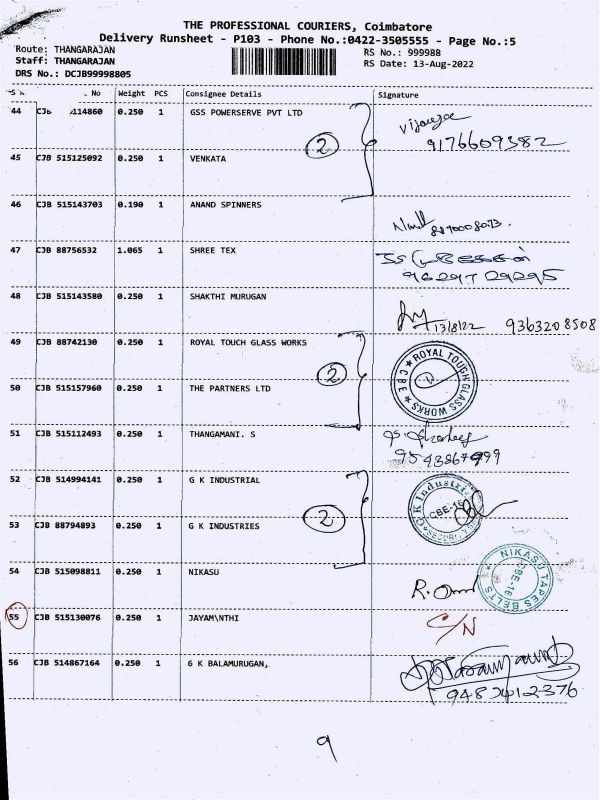 THE PROFESSIONAL COURIERS, Coimbatore
Delivery Runsheet - P103 - Phone No.:0422-3505555 - Page No.:5
Route: THANGARAJAN
RS No.: 999988
Staff: THANGARAJAN
RS Date: 13-Aug-2022
DRS No.: DCJB99998805
No Weight PCS Consignee Details Signature
44 114860 0.250 1 GSS POWERSERVE PVT LTD
2
9176609382
45 CJB 515125092 0.250 1 VENKATA
46 CJB 515143703 0.190 1 ANAND SPINNERS
47 CJB 88756532 1.065 1 SHREE TEX
9629729295
48 CJB 515143580 0.250 1 SHAKTHI MURUGAN
13/8/22 9363208508
49 CJB 88742130 0.250 1 ROYAL TOUCH GLASS WORKS
2
ROYAL TOUGH GLASS WORKS
CBE
50 CJB 515157960 0.250 1 THE PARTNERS LTD
51 CJB 515112493 0.250 1 THANGAMANI. S
9543867999
52 CJB 514994141 0.250 1 G K INDUSTRIAL
2
G K Industries
CBE-16
SECURITY
53 CJB 88794893 0.250 1 G K INDUSTRIES
54 CJB 515098811 0.250 1 NIKASU
NIKASU TAPES BELTS
CBE-16
55 CJB 515130076 0.250 1 JAYAM\NTHI
C/N
56 CJB 514867164 0.250 1 G K BALAMURUGAN,
9